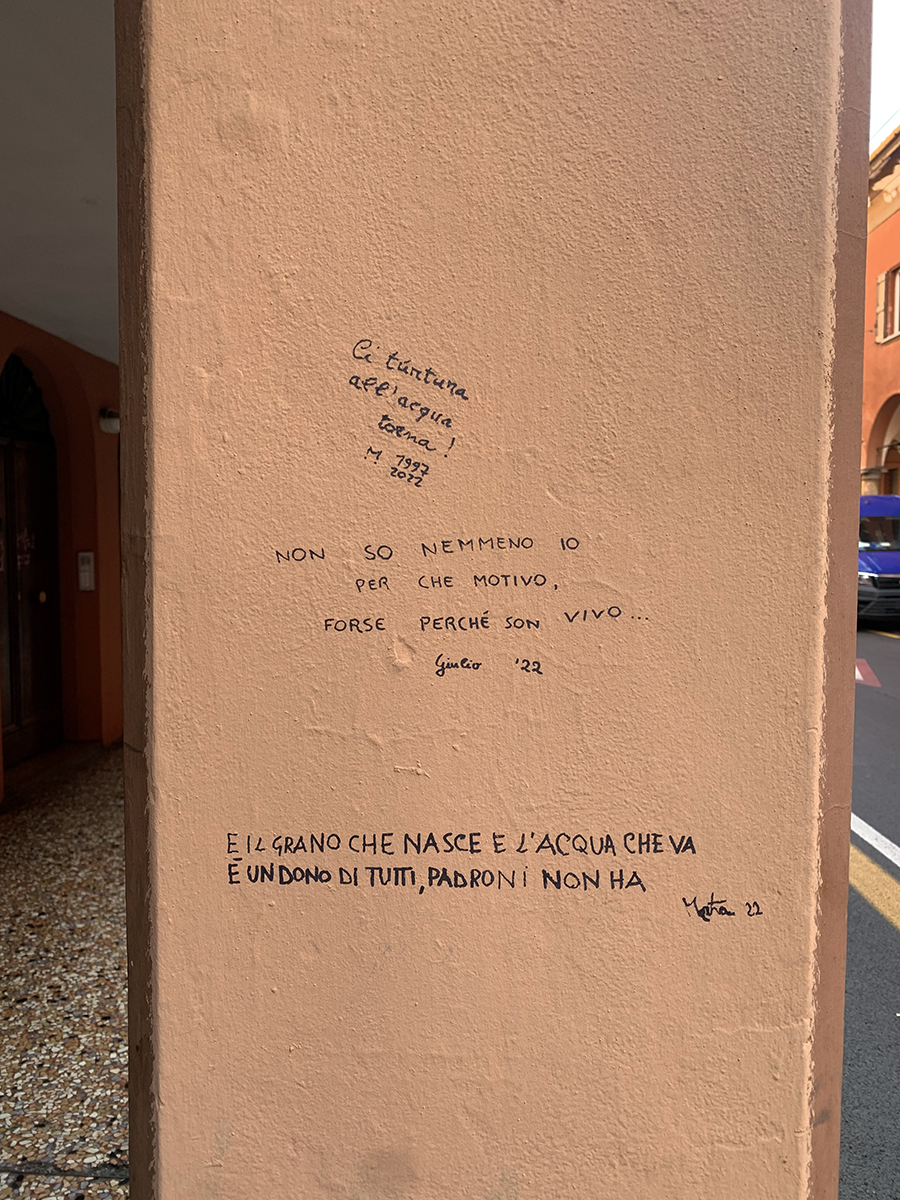 Ci túrtura
all'acqua
torna!
M 1997
2022
NON SO NEMMENO IO
PER CHE MOTIVO,
FORSE PERCHÉ SON VIVO...
Giulio '22
E IL GRANO CHE NASCE E L'ACQUA CHE VA
È UN DONO DI TUTTI, PADRONI NON HA
22